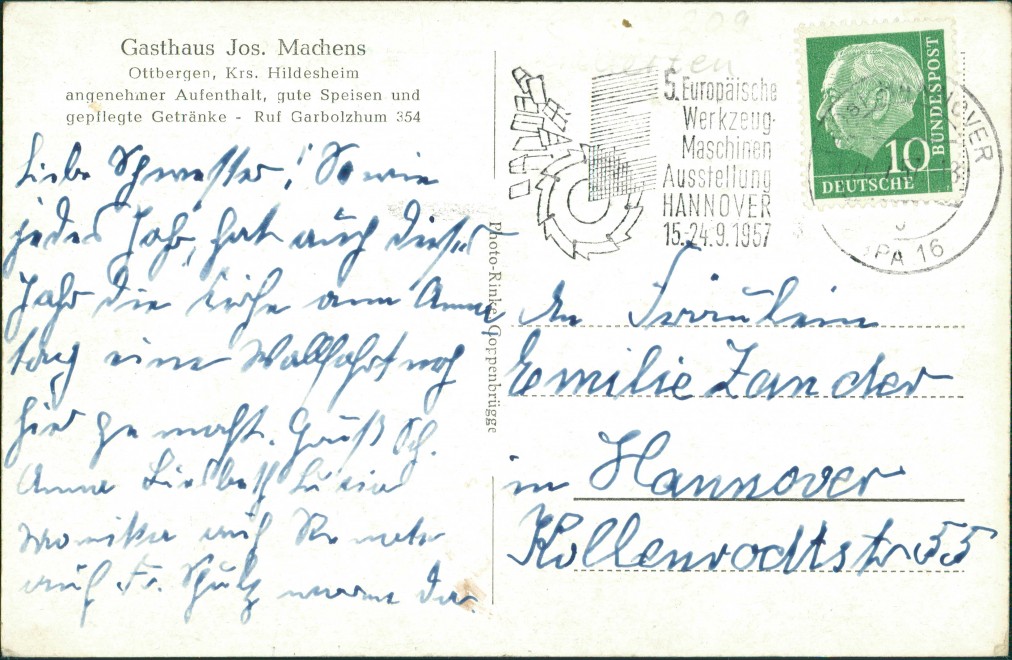 Gasthaus Jos. Machens
Ottbergen, Krs. Hildesheim
angenehmer Aufenthalt, gute Speisen und
gepflegte Getränke - Ruf Garbolzhum 354
Liebe Schwester! So wie
jedes Jahr, hat auch dieses
Jahr die Kirche am Anna
tag eine Wallfahrt nach
hier gemacht. Gruß Sch.
Anna Liesbeth Luzia
Monika auch Renate
auch Fr. Schulz waren da.
Photo-Rinke, Coppenbrügge
5. Europäische
Werkzeug-
Maschinen
Ausstellung
HANNOVER
15.-24.9.1957
DEUTSCHE
BUNDESPOST
10
HANNOVER
PA 16
An Fräulein
Emilie Zander
in Hannover
Kollenrodtstr 55